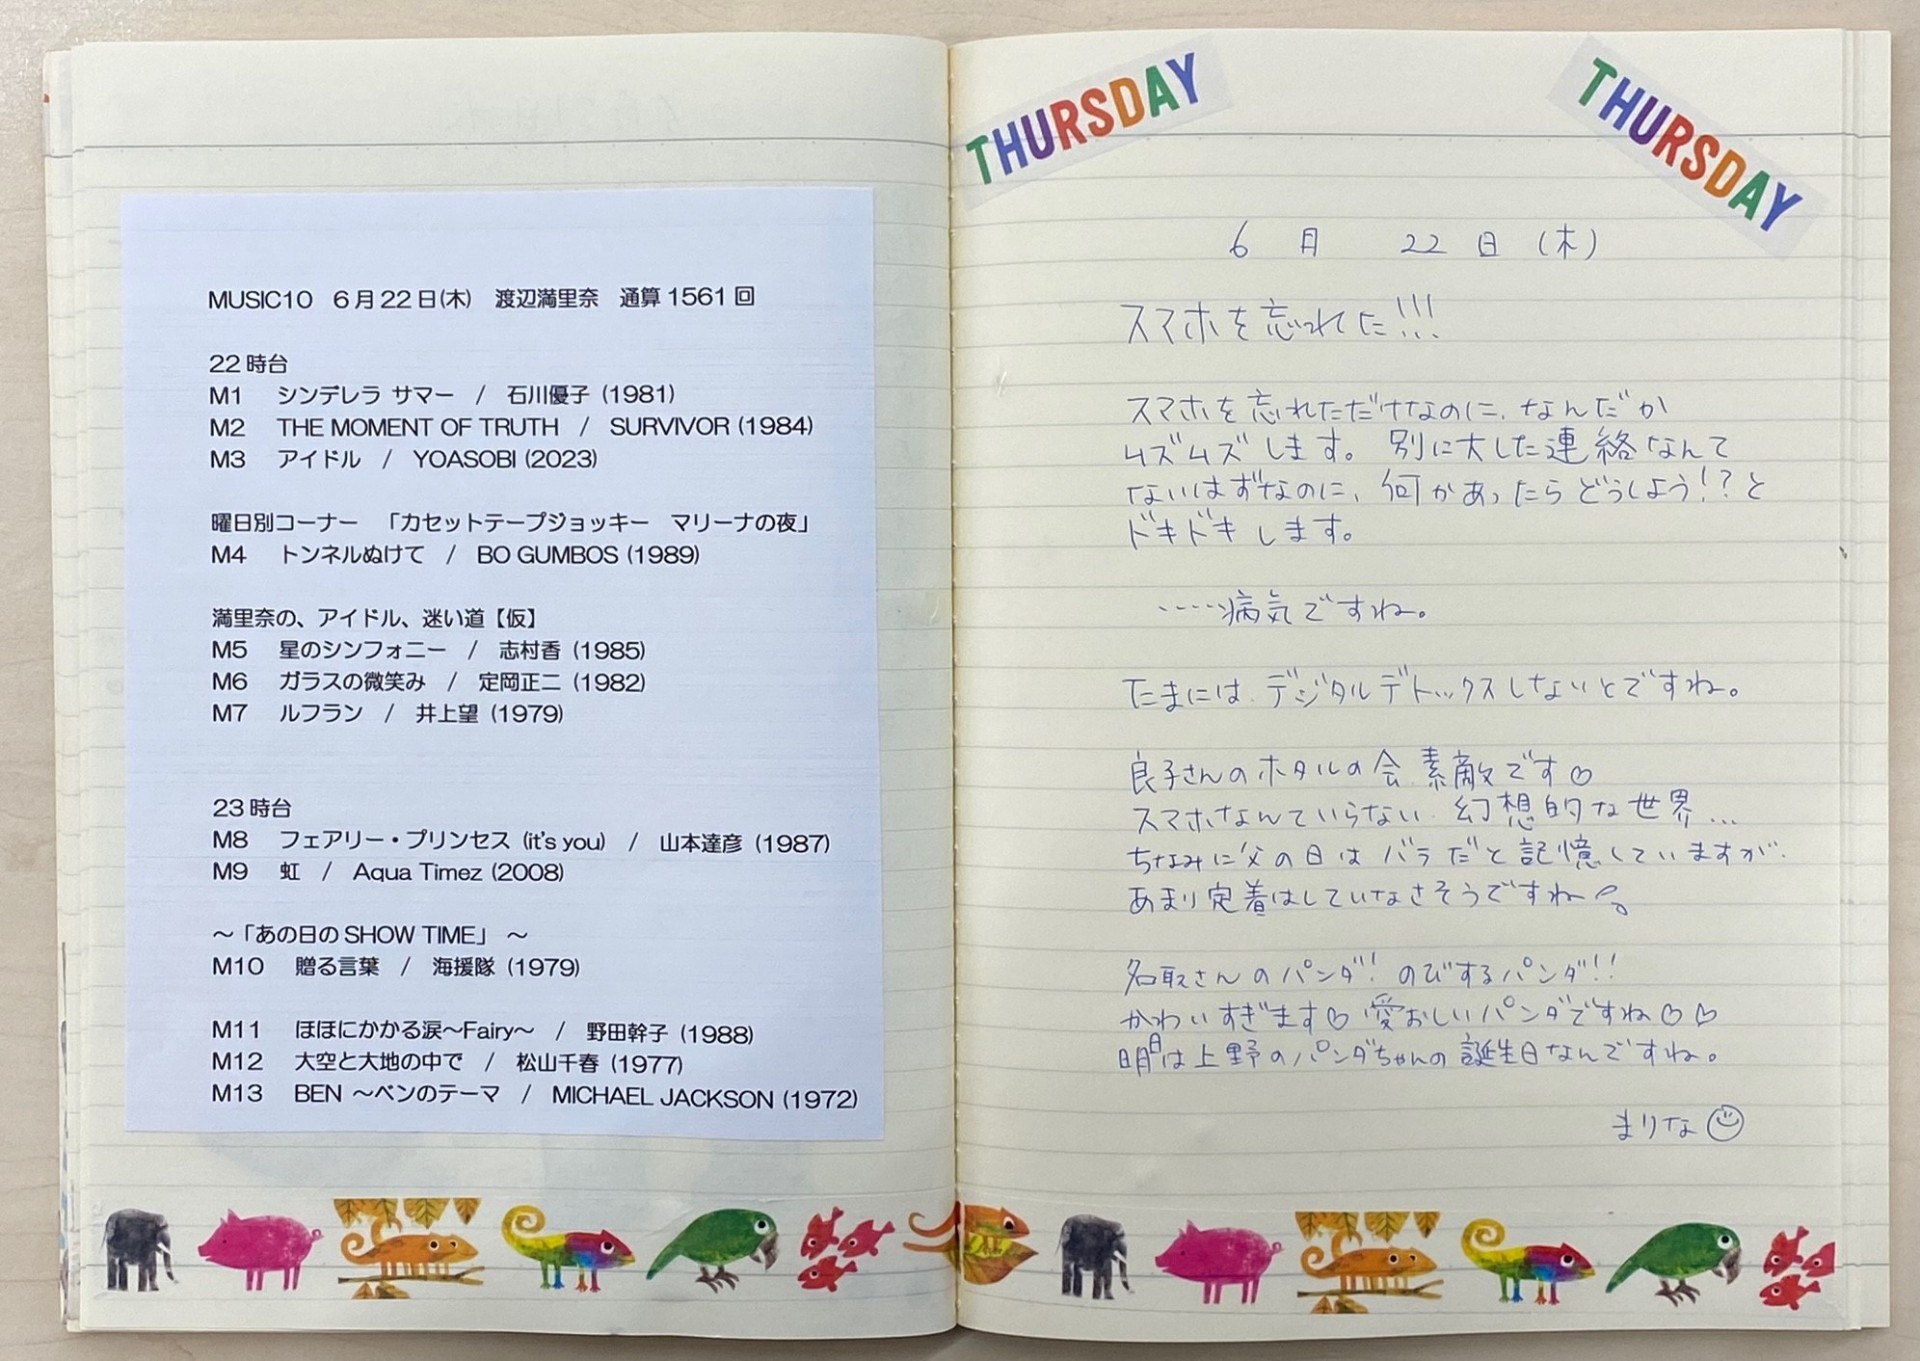 MUSIC10 6月22日(木) 渡辺満里奈 通算1561回
22時台
M1 シンデレラ サマー / 石川優子 (1981)
M2 THE MOMENT OF TRUTH / SURVIVOR (1984)
M3 アイドル / YOASOBI (2023)
曜日別コーナー 「カセットテープジョッキー マリーナの夜」
M4 トンネルぬけて / BO GUMBOS (1989)
満里奈の、アイドル、迷い道【仮】
M5 星のシンフォニー / 志村香 (1985)
M6 ガラスの微笑み / 定岡正二 (1982)
M7 ルフラン / 井上望 (1979)
23時台
M8 フェアリー・プリンセス (it's you) / 山本達彦 (1987)
M9 虹 / Aqua Timez (2008)
～「あの日のSHOW TIME」 ～
M10 贈る言葉 / 海援隊 (1979)
M11 ほほにかかる涙～Fairy～ / 野田幹子 (1988)
M12 大空と大地の中で / 松山千春 (1977)
M13 BEN ～ベンのテーマ / MICHAEL JACKSON (1972)
THURSDAY
THURSDAY
6月 22日 (木)
スマホを忘れた!!!
スマホを忘れただけなのに、なんだか
ムズムズします。別に大した連絡なんて
ないはずなのに、何かあったらどうしよう!?と
ドキドキします。
……病気ですね。
たまには、デジタルデトックスしないとですね。
良子さんのホタルの会、素敵です♡
スマホなんていらない、幻想的な世界…
ちなみに父の日はバラだと記憶していますが、
あまり定着はしていなさそうですね
名取さんのパンダ! のびするパンダ!!
かわいすぎます♡ 愛おしいパンダですね♡♡
明日は上野のパンダちゃんの誕生日なんですね。
まりな☺